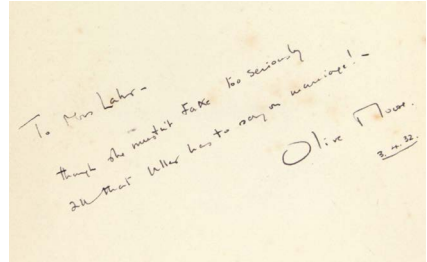 To Mrs Lahr –
though she mustn't take too seriously
all that Uller has to say on marriage! –
Olive Moore.
3.4.32.